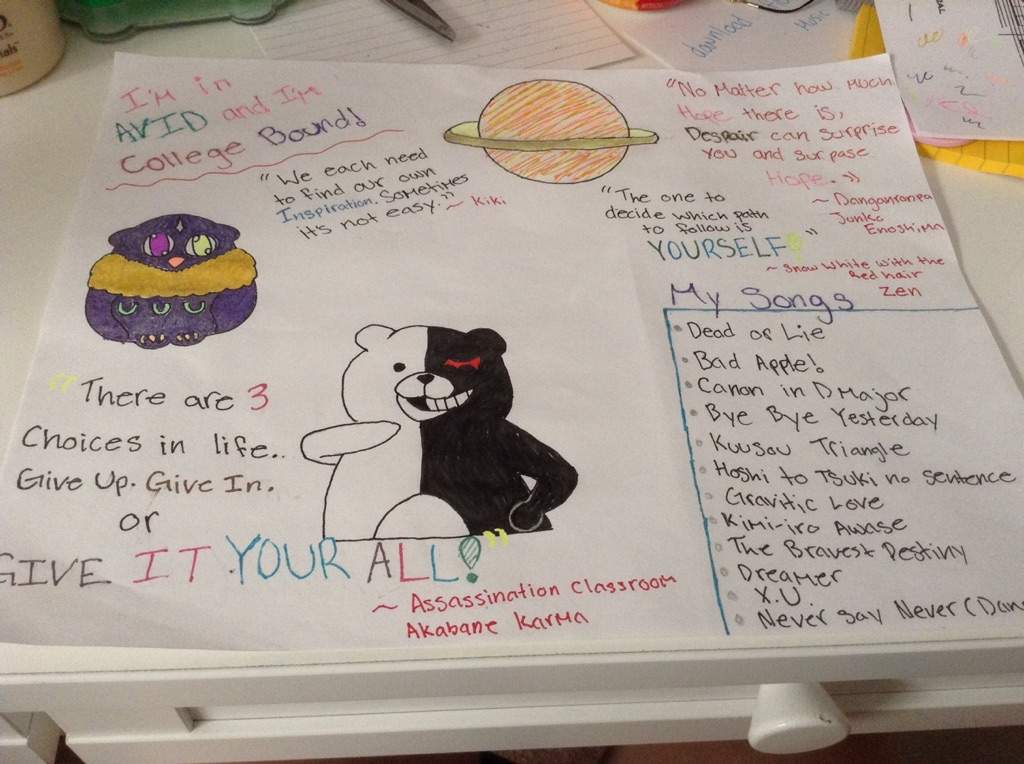 I'm in
AVID and I'm
College Bound!
"We each need
to find our own
Inspiration. Sometimes
it's not easy."
~ Kiki
"No Matter how Much
Hope there is,
Despair can surprise
you and surpase
Hope."
~ Danganronpa
Junko
Enoshima
"The one to
decide which path
to follow is
YOURSELF!"
~ Snow White with the
Red hair
Zen
"There are 3
Choices in life..
Give Up. Give In.
or
GIVE IT YOUR ALL!"
~ Assassination Classroom
Akabane Karma
My Songs
Dead or Lie
Bad Apple!
Canon in D Major
Bye Bye Yesterday
Kuusou Triangle
Hoshi to Tsuki no sentence
Gravitic Love
Kimi-iro Awase
The Bravest Destiny
Dreamer
X.U.
Never say Never (Dan
download
Music